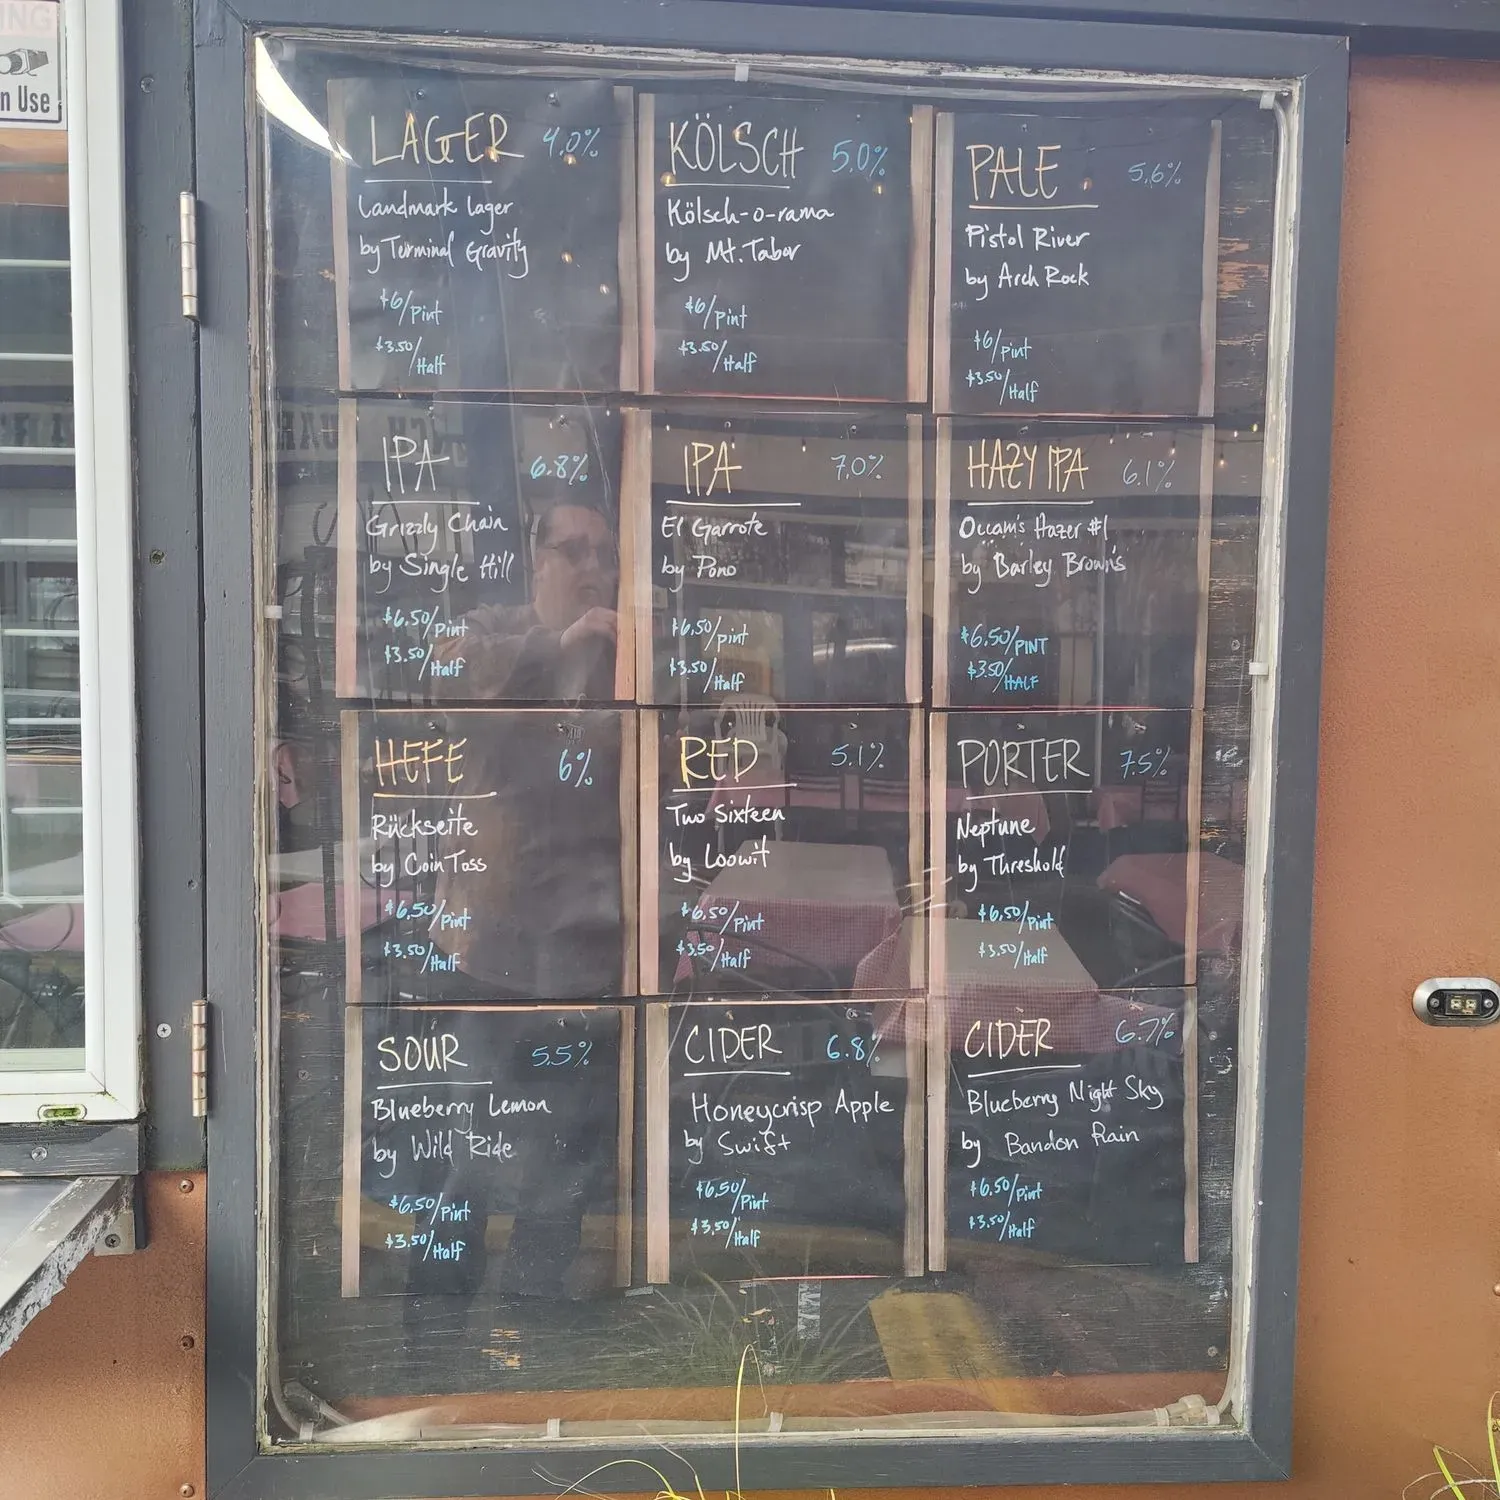 ING
n Use
LAGER 4.0%
Landmark Lager
by Terminal Gravity
$6/Pint
$3.50/Half
KÖLSCH 5.0%
Kölsch-o-rama
by Mt. Tabor
$6/Pint
$3.50/Half
PALE 5.6%
Pistol River
by Arch Rock
$6/Pint
$3.50/Half
IPA 6.8%
Grizzly Chain
by Single Hill
$6.50/Pint
$3.50/Half
IPA 7.0%
El Garrote
by Pono
$6.50/Pint
$3.50/Half
HAZY IPA 6.1%
Occam's Hazer #1
by Barley Brown's
$6.50/PINT
$3.50/HALF
HEFE 6%
Rückseite
by Coin Toss
$6.50/Pint
$3.50/Half
RED 5.1%
Two Sixteen
by Loowit
$6.50/Pint
$3.50/Half
PORTER 7.5%
Neptune
by Threshold
$6.50/Pint
$3.50/Half
SOUR 5.5%
Blueberry Lemon
by Wild Ride
$6.50/Pint
$3.50/Half
CIDER 6.8%
Honeycrisp Apple
by Swift
$6.50/Pint
$3.50/Half
CIDER 6.7%
Blueberry Night Sky
by Bandon Rain
$6.50/Pint
$3.50/Half